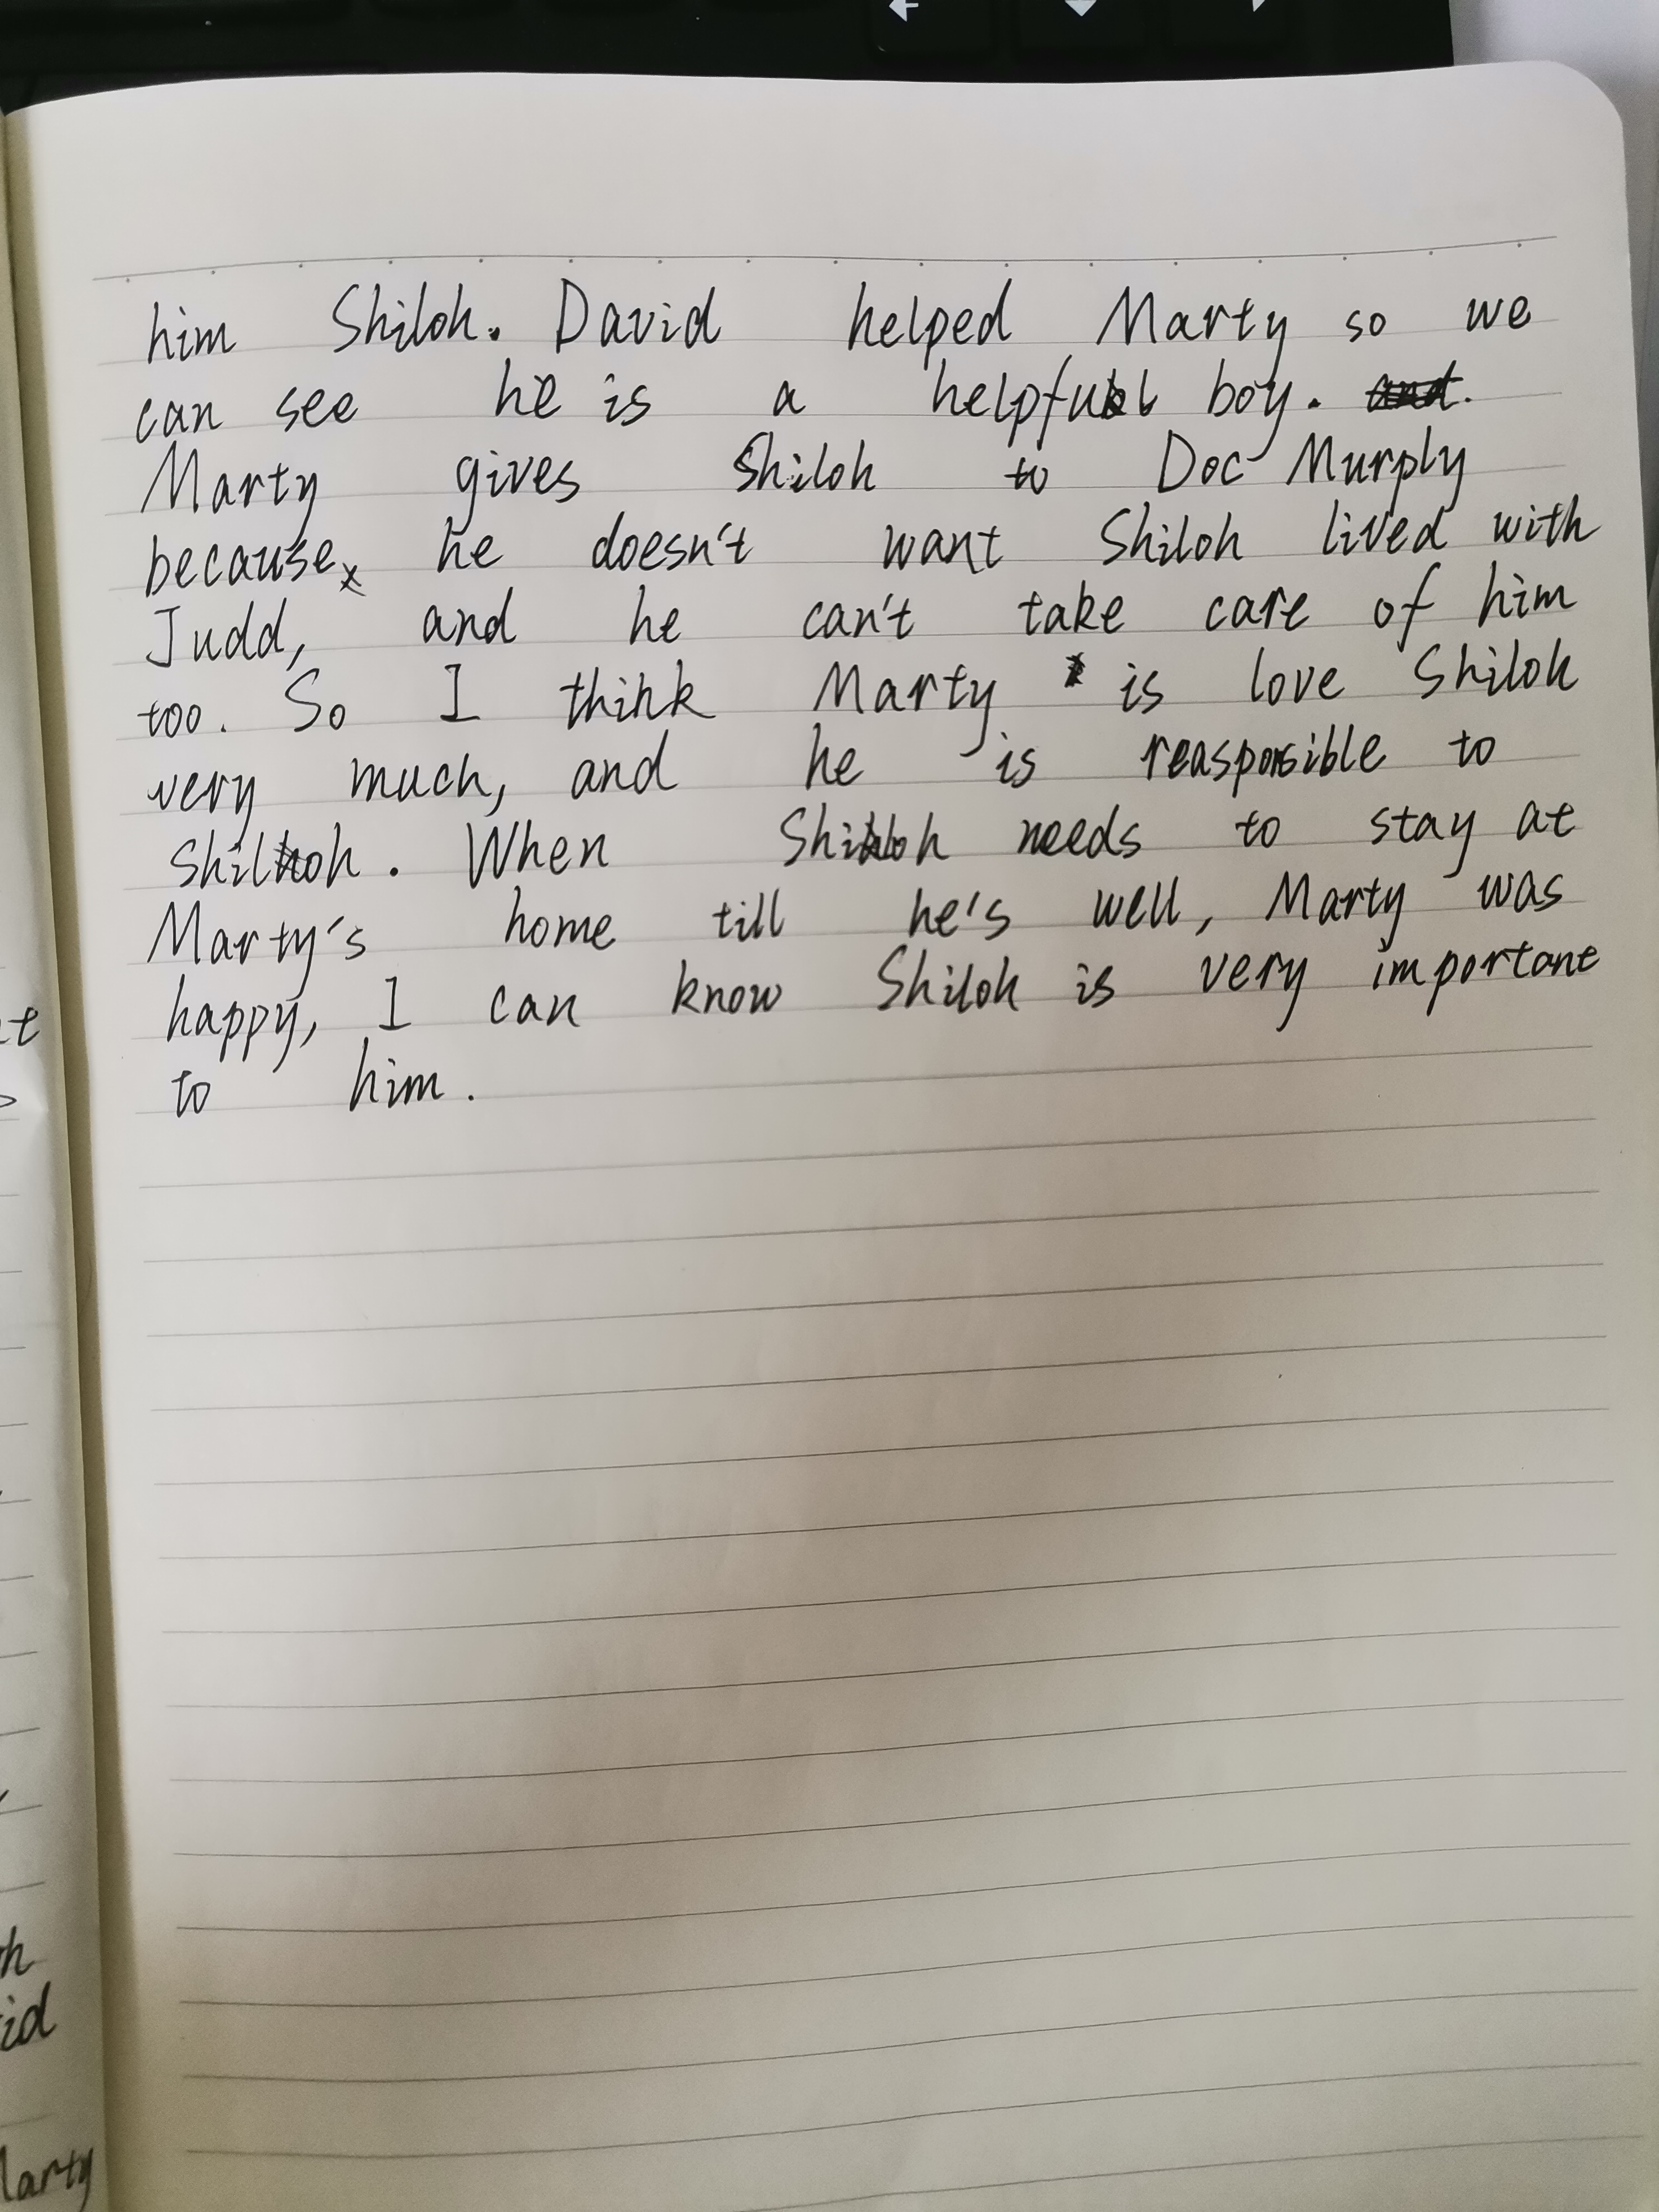 him Shiloh. David helped Marty so we
can see he is a helpful boy.
Marty gives Shiloh to Doc Murply
because he doesn't want Shiloh lived with
Judd, and he can't take care of him
too. So I think Marty is love Shiloh
very much, and he is reasponsible to
Shiloh. When Shiloh needs to stay at
Marty's home till he's well, Marty was
happy, I can know Shiloh is very important
to him.